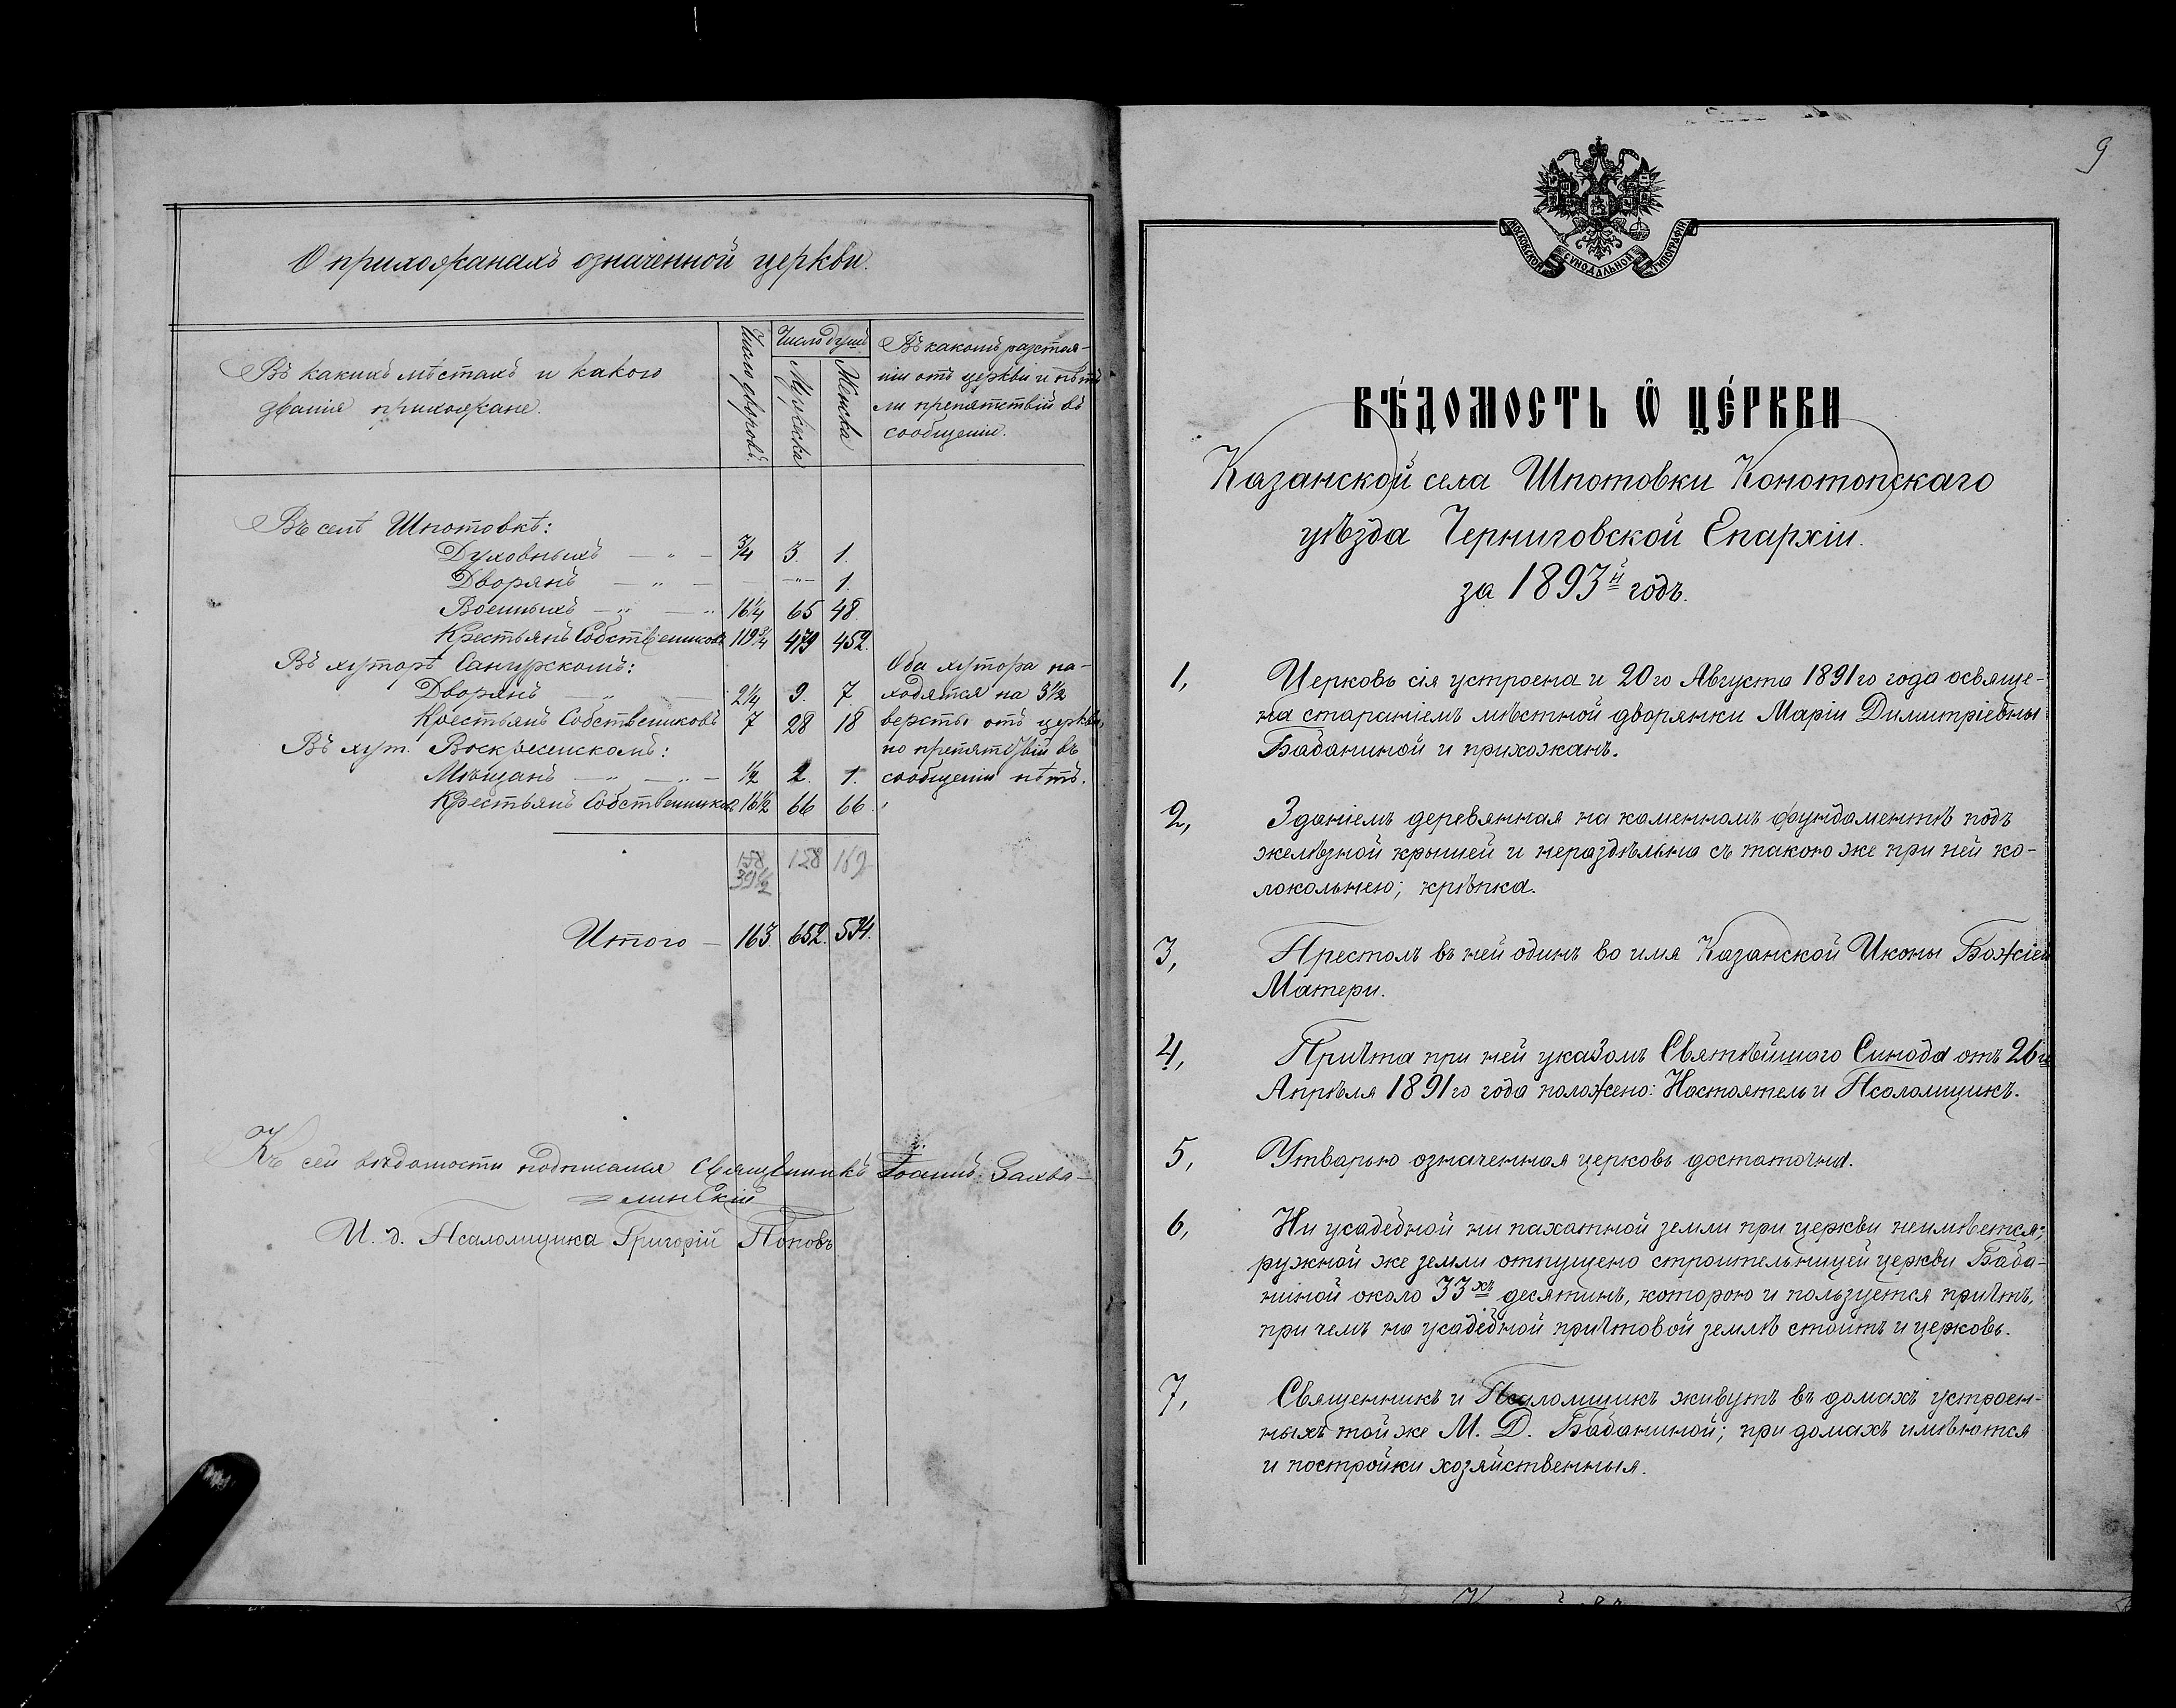 О прихожанахъ означенной церкви.
Въ какихъ мѣстахъ и какого
званія прихожане.
Число дворовъ.
Число душъ
Мужеска
Женска
Въ какомъ разстоя-
ніи отъ церкви и нѣтъ
ли препятствій въ
сообщеніи.
Въ селѣ Шпотовкѣ:
Духовныхъ — " — 3/4 3. 1.
Дворянъ — " — — — " — 1.
Военныхъ — " — " 16 1/4 65 48.
Крестьянъ Собствениковъ 119 3/4 479 452.
Въ хуторѣ Сангурскомъ:
Дворянъ — " — 2 1/4 9. 7.
Крестьянъ Собствениковъ 7 28 18
Въ хут. Воскресенскомъ:
Мѣщанъ — " — " — 1/2 2. 1.
Крестьянъ Собственниковъ 16 1/2 66 66.
Оба хутора на-
ходятся на 3 1/2
версты отъ церкви,
но препятствій въ
сообщеніи нѣтъ.
158 158 162
39 1/2
Итого — 163. 652. 594.
Къ сей вѣдомости подписался Священникъ Іоаннъ
И. д. Псаломщика Григорій Поповъ
9
МОСКОВСКОЙ СѴНОДАЛЬНОЙ ТИПОГРАФІИ
ВѢ́ДОМОСТЬ Ѡ ЦЕ́РКВИ
Казанской села Шпотовки Конотопскаго
уѣзда Черниговской Епархіи.
за 1893й годъ.
1, Церковь сія устроена и 20го Августа 1891го года освяще-
на стараніемъ мѣстной дворянки Маріи Димитріевны
Бабаниной и прихожанъ.
2, Зданіемъ деревянная на каменномъ фундаментѣ подъ
желѣзной крышей и нераздѣльна съ такою же при ней ко-
локольнею; крѣпка.
3, Престолъ въ ней одинъ во имя Казанской Иконы Божіей
Матери.
4, Причта при ней указомъ Святѣйшаго Синода отъ 26го
Апрѣля 1891го года положено: Настоятель и Псаломщикъ.
5, Утварью означенная церковь достаточна.
6, Ни усадебной ни пахатной земли при церкви неимѣется;
ружной же земли отпущено строительницей церкви Баба-
ниной около 33хъ десятинъ, которою и пользуется причтъ,
при чемъ на усадебной причтовой землѣ стоитъ и церковь.
7, Священникъ и Псаломщикъ живутъ въ домахъ устроен-
ныхъ той же М. Д. Бабаниной; при домахъ имѣются
и постройки хозяйственныя.